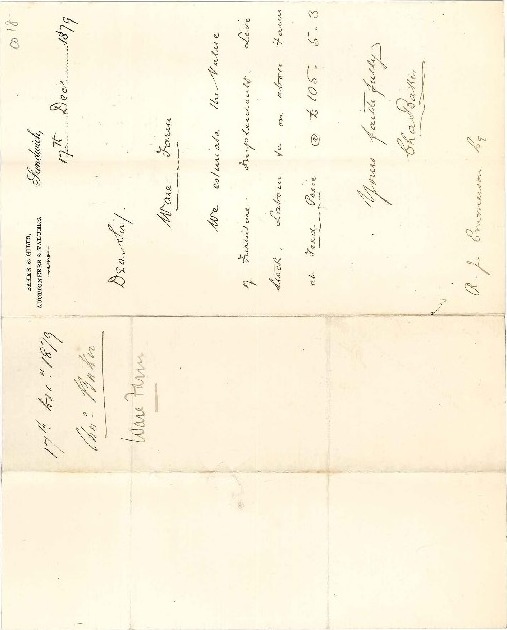 Sandwich,
17th Decr 1879
AUCTIONEERS & VALUERS.
Dear Sir,
Ware Farm
We estimate the Value
of Furniture. Implements. Live
Stock. Labour &c on above Farm
at Fend Price @ £105-5-3
Yours faithfully
Chas Baker
R. J. Emmerson Esq
17th Decr 1879
Chas Baker
Ware Farm